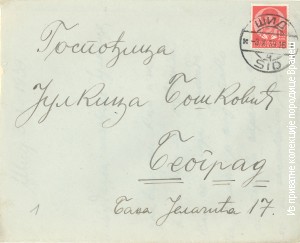 Госпођица
Јулкица Бошковић
Београд
Баба Јелачића 17.
1
ШИД
ŠID
Из приватне колекције породице Брашић